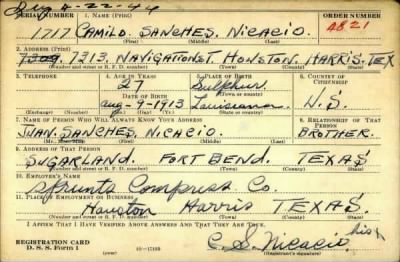 8-22-44
SERIAL NUMBER 1. NAME (Print) ORDER NUMBER
1717 CAMILO. SANCHES. NICACIO. 4821
(First) (Middle) (Last)
2. ADDRESS (Print)
7309. 7313. NAVIGATIONST HOUSTON. HARRIS. TEX
(Number and street or R. F. D. number) (Town) (County) (State)
3. TELEPHONE 4. AGE IN YEARS 5. PLACE OF BIRTH 6. COUNTRY OF CITIZENSHIP
27 Sulphur
DATE OF BIRTH (Town or county)
Aug-9-1913 Louisiana U.S.
(Exchange) (Number) (Mo.) (Day) (Yr.) (State or country)
7. NAME OF PERSON WHO WILL ALWAYS KNOW YOUR ADDRESS 8. RELATIONSHIP OF THAT PERSON
JUAN. SANCHES, NICACIO. BROTHER.
(First) (Middle) (Last)
9. ADDRESS OF THAT PERSON
SUGARLAND. FORT BEND. TEXAS
(Number and street or R. F. D. number) (Town) (County) (State)
10. EMPLOYER'S NAME
Sprunts Compress Co.
11. PLACE OF EMPLOYMENT OR BUSINESS
Houston Harris TEXAS.
(Number and street or R. F. D. number) (Town) (County) (State)
I AFFIRM THAT I HAVE VERIFIED ABOVE ANSWERS AND THAT THEY ARE TRUE.
REGISTRATION CARD
D. S. S. Form 1 C. S. Nicacio
(over)